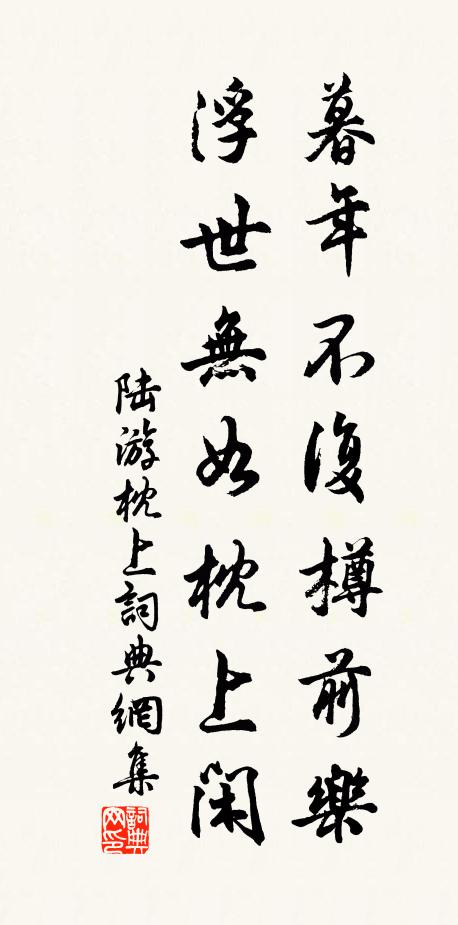 暮年不復樽前樂
浮世無如枕上閑
陸游枕上詞典網集
詞典网印